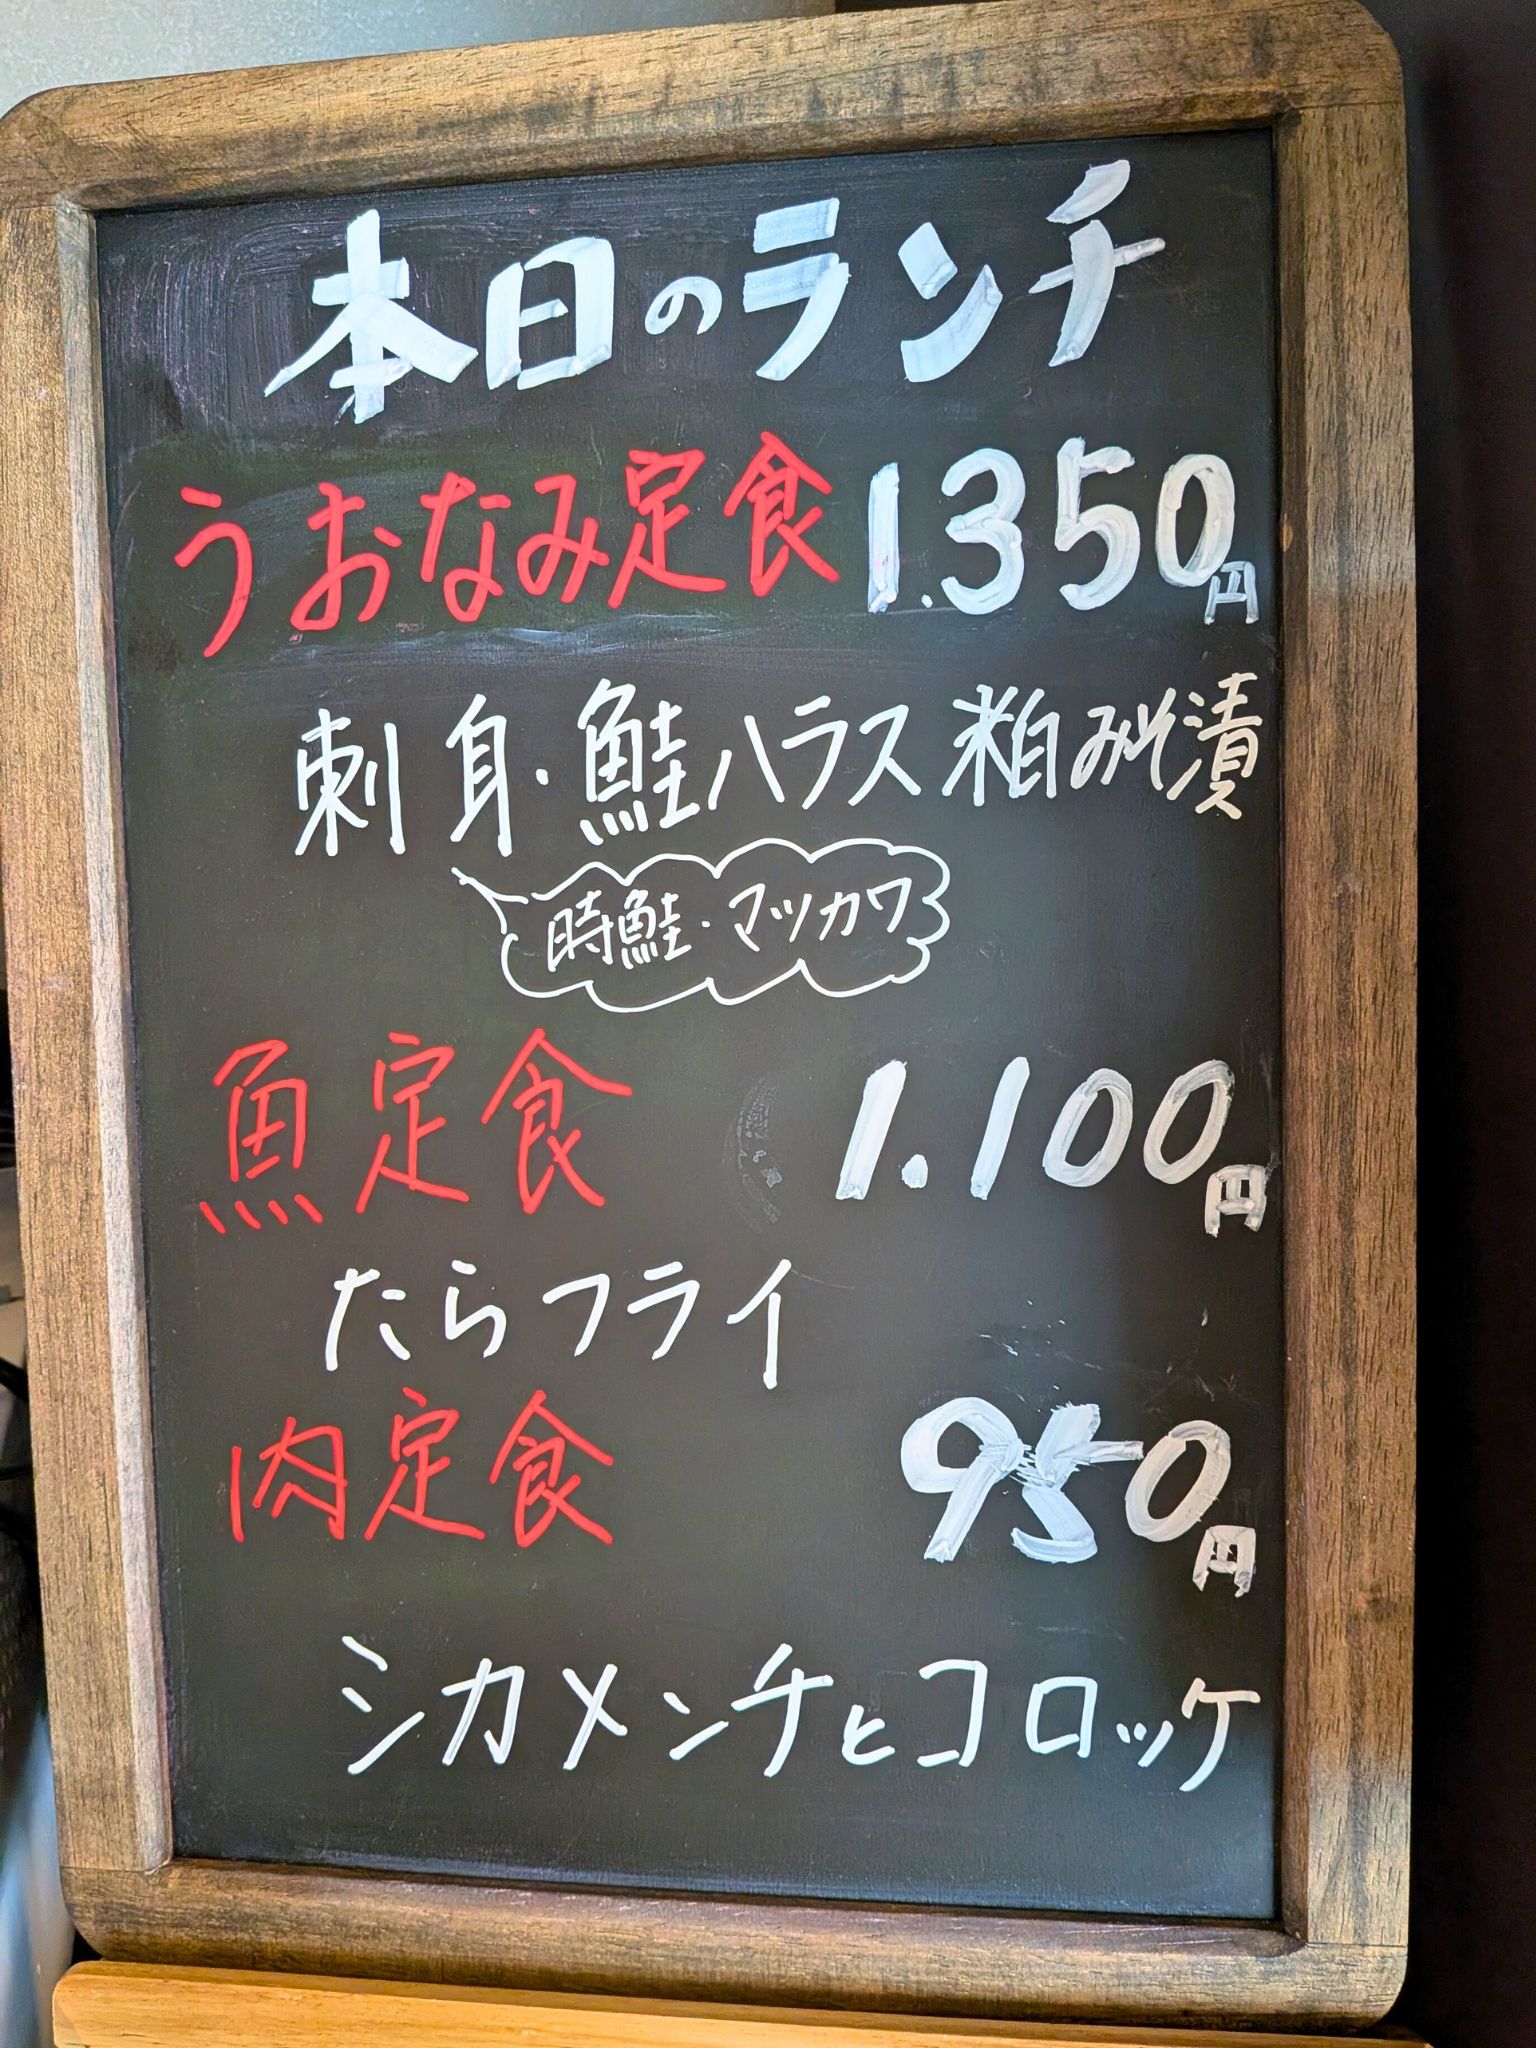 本日のランチ
うおなみ定食 1.350円
刺身・鮭ハラス粕みそ漬
時鮭・マツカワ
魚定食 1.100円
たらフライ
肉定食 950円
シカメンチとコロッケ